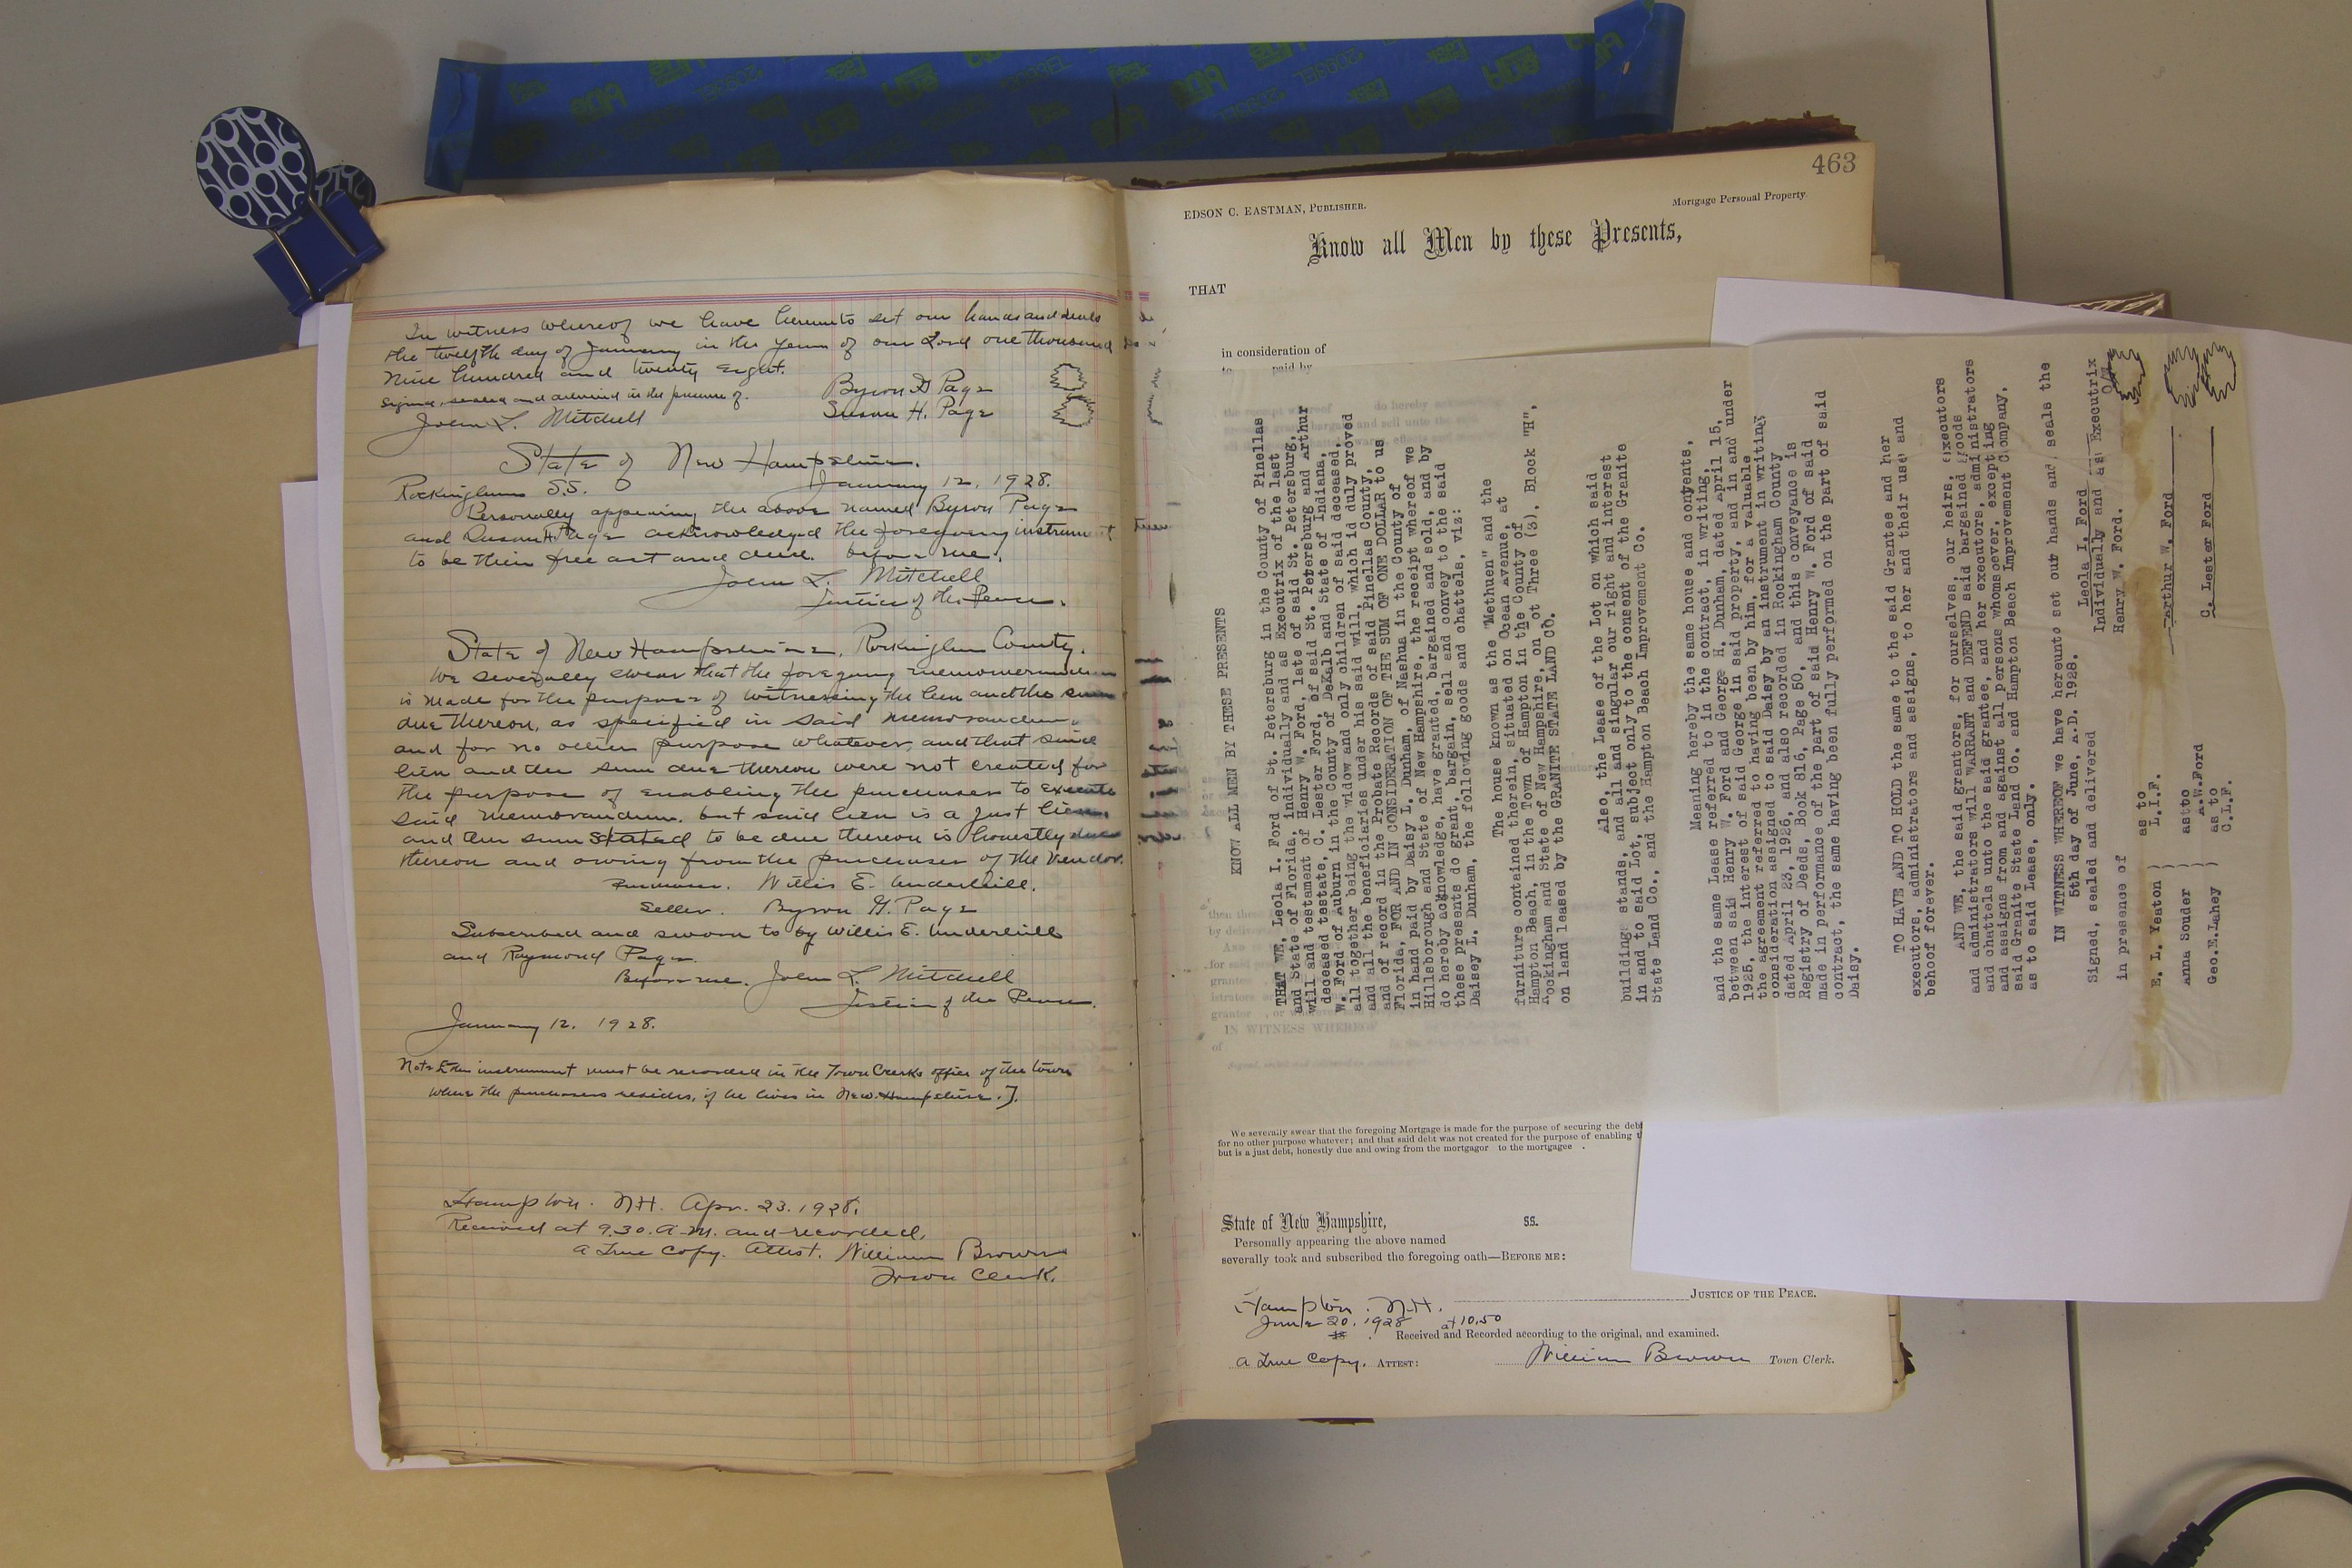 In witness whereof we have hereunto set our hands and seals
the twelfth day of January in the year of our Lord one thousand
Nine hundred and twenty eight.
Signed, sealed and delivered in the presence of.
Byron G Page
John L. Mitchell
Susan H. Page
State of New Hampshire.
Rockingham S.S. January 12, 1928.
Personally appearing the above named Byron Page
and Susan H. Page acknowledged the foregoing instrument
to be their free act and deed. before me.
John L. Mitchell
Justice of the Peace.
State of New Hampshire, Rockingham County.
We severally swear that the foregoing memorandum
is made for the purpose of witnessing the lien and the sum
due thereon, as specified in said memorandum,
and for no other purpose whatever, and that said
lien and the sum due thereon were not created for
the purpose of enabling the purchaser to execute
said memorandum. but said lien is a just lien
and the sum stated to be due thereon is honestly due
thereon and owing from the purchaser of the Vendor.
Purchaser. Willis E. Underhill.
Seller. Byron G. Page
Subscribed and sworn to by Willis E. Underhill
and Raymond Page.
Before me. John L. Mitchell
Justice of the Peace.
January 12, 1928.
Note [This instrument must be recorded in the Town Clerks office of the town
where the purchasers resides, if he lives in New Hampshire.].
Hampton. N.H. Apr. 23. 1928.
Received at 9.30. A.M. and recorded.
a True Copy. Attest. William Brown
Town Clerk.
463
EDSON C. EASTMAN, PUBLISHER.
Mortgage Personal Property.
Know all Men by these Presents,
THAT
in consideration of
to paid by
KNOW ALL MEN BY THESE PRESENTS
THAT WE, Leola I. Ford of St. Petersburg in the County of Pinellas
and State of Florida, individually and as Executrix of the last
will and testament of Henry W. Ford, late of said St. Petersburg,
deceased testate, C. Lester Ford, of said St. Petersburg and Arthur
W. Ford of Auburn in the County of DeKalb and State of Indiana,
all together being the widow and only children of said deceased,
and all the beneficiaries under his said will, which is duly proved
and of record in the Probate Records of said Pinellas County,
Florida, FOR AND IN CONSIDERATION OF THE SUM OF ONE DOLLAR to us
in hand paid by Daisy L. Dunham, of Nashua in the County of
Hillsborough and State of New Hampshire, the receipt whereof we
do hereby acknowledge, have granted, bargained and sold, and by
these presents do grant, bargain, sell and convey to the said
Daisey L. Dunham, the following goods and chattels, viz:
The house known as the "Methuen" and the
furniture contained therein, situated on Ocean Avenue, at
Hampton Beach, in the Town of Hampton in the County of
Rockingham and State of New Hampshire, on Lot Three (3), Block "H",
on land leased by the GRANITE STATE LAND CO.
Also, the Lease of the Lot on which said
buildings stands, and all and singular our right and interest
in and to said Lot, subject only to the consent of the Granite
State Land Co., and the Hampton Beach Improvement Co.
Meaning hereby the same house and contents,
and the same Lease referred to in the contract, in writing,
between said Henry W. Ford and George H. Dunham, dated April 15,
1925. the interest of said George in said property, and in and under
the agreement referred to having been by him, for a valuable
consideration assigned to said Daisy by an instrument in writing
dated April 23, 1926, and also recorded in Rockingham County
Registry of Deeds, Book 816, Page 50, and this conveyance is
made in performance of the part of said Henry W. Ford of said
contract, the same having been fully performed on the part of said
Daisy.
TO HAVE AND TO HOLD the same to the said Grantee and her
executors, administrators and assigns, to her and their use and
behoof forever.
AND WE, the said grantors, for ourselves, our heirs, executors
and administrators will WARRANT and DEFEND said bargained goods
and chattels unto the said grantee, and her executors, administrators
and assigns from and against all persons whomsoever, excepting
said Granite State Land Co. and Hampton Beach Improvement Company,
as to said Lease, only.
IN WITNESS WHEREOF we have hereunto set our hands and seals the
5th day of June, A.D. 1928.
Signed, sealed and delivered
in presence of
Leola I. Ford
Individually and as Executrix
Henry W. Ford.
E. L. Yeaton ) as to L.I.F.
Arthur W. Ford
Anna Souder ) as to A.W.Ford
C. Lester Ford
Geo.E.Lahey ) as to C.L.F.
IN WITNESS WHEREOF
of
We severally swear that the foregoing Mortgage is made for the purpose of securing the debt
for no other purpose whatever; and that said debt was not created for the purpose of enabling t
but is a just debt, honestly due and owing from the mortgagor to the mortgagee .
State of New Hampshire, SS.
Personally appearing the above named
severally took and subscribed the foregoing oath—BEFORE ME:
JUSTICE OF THE PEACE.
Hampton. N.H.
June 20. 1928 at 10.50
Received and Recorded according to the original, and examined.
a True Copy. ATTEST: William Brown Town Clerk.